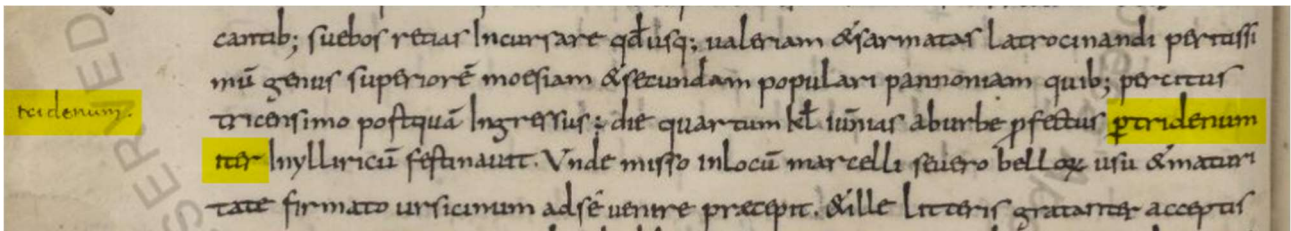 cantib; suebos retias Incursare qd̄usq; ualeriam &sarmatas Latrocinandi peritissi
mū genus superiorē moesiam &secundam populari pannoniam quib; percitus
tridenum.
tricensimo postquā Ingressus ÷ die quartum kł iūnias aburbe ꝓfectus ꝑtridenum
iter Inylliricū festinauit. Vnde misso inlocū marcelli seuero belloꝝ usu &maturi
tate firmato ursicinum adsē uenire praecepit. &ille Litteris gratanter acceptis